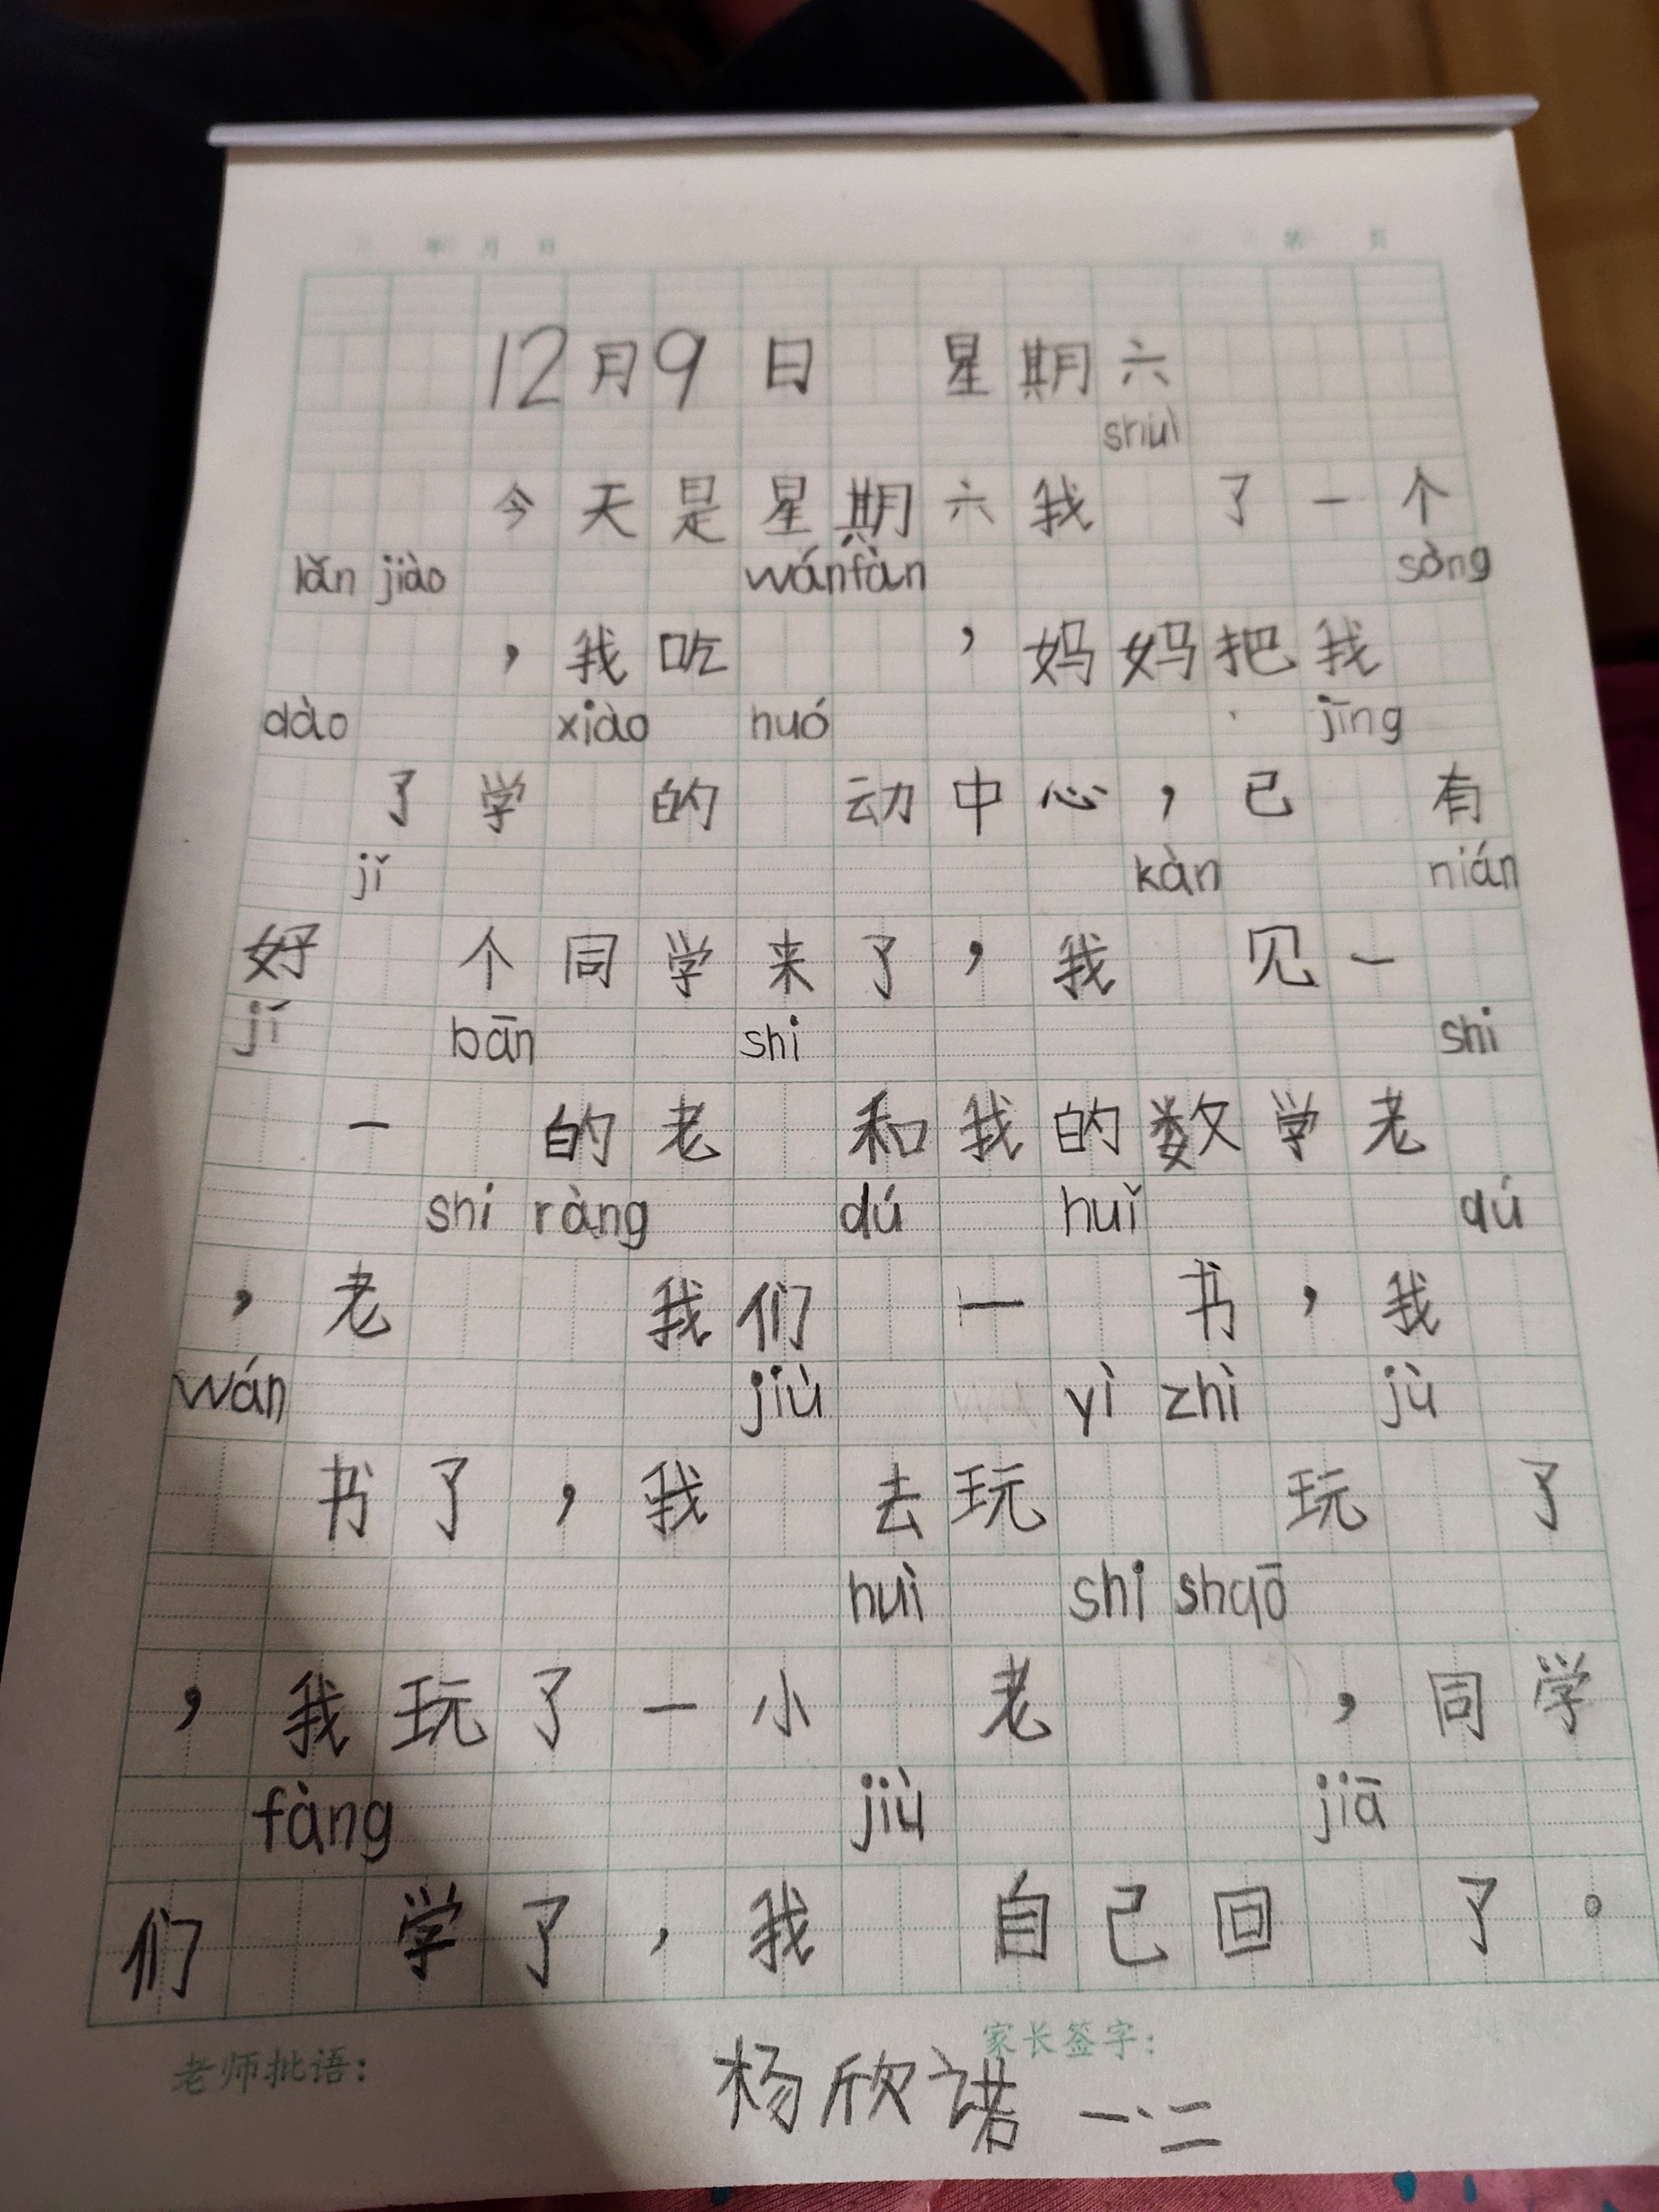 年 月 日 第 页
12月9日 星期六
shuì
今天是星期六我 了一个
lǎn jiào wánfàn sòng
，我吃 ，妈妈把我
dào xiào huó jīng
了学 的 动中心，已 有
jǐ kàn nián
好 个同学来了，我 见一
jí bān shi shi
一 的老 和我的数学老
shi ràng dú huǐ dú
，老 我们 一 书，我
wán jiù yì zhì jù
书了，我 去玩 玩 了
huì shi shaō
，我玩了一小 老 ，同学
fàng jiù jiā
们 学了，我 自己回 了。
老师批语： 家长签字：
杨欣诺 一、二